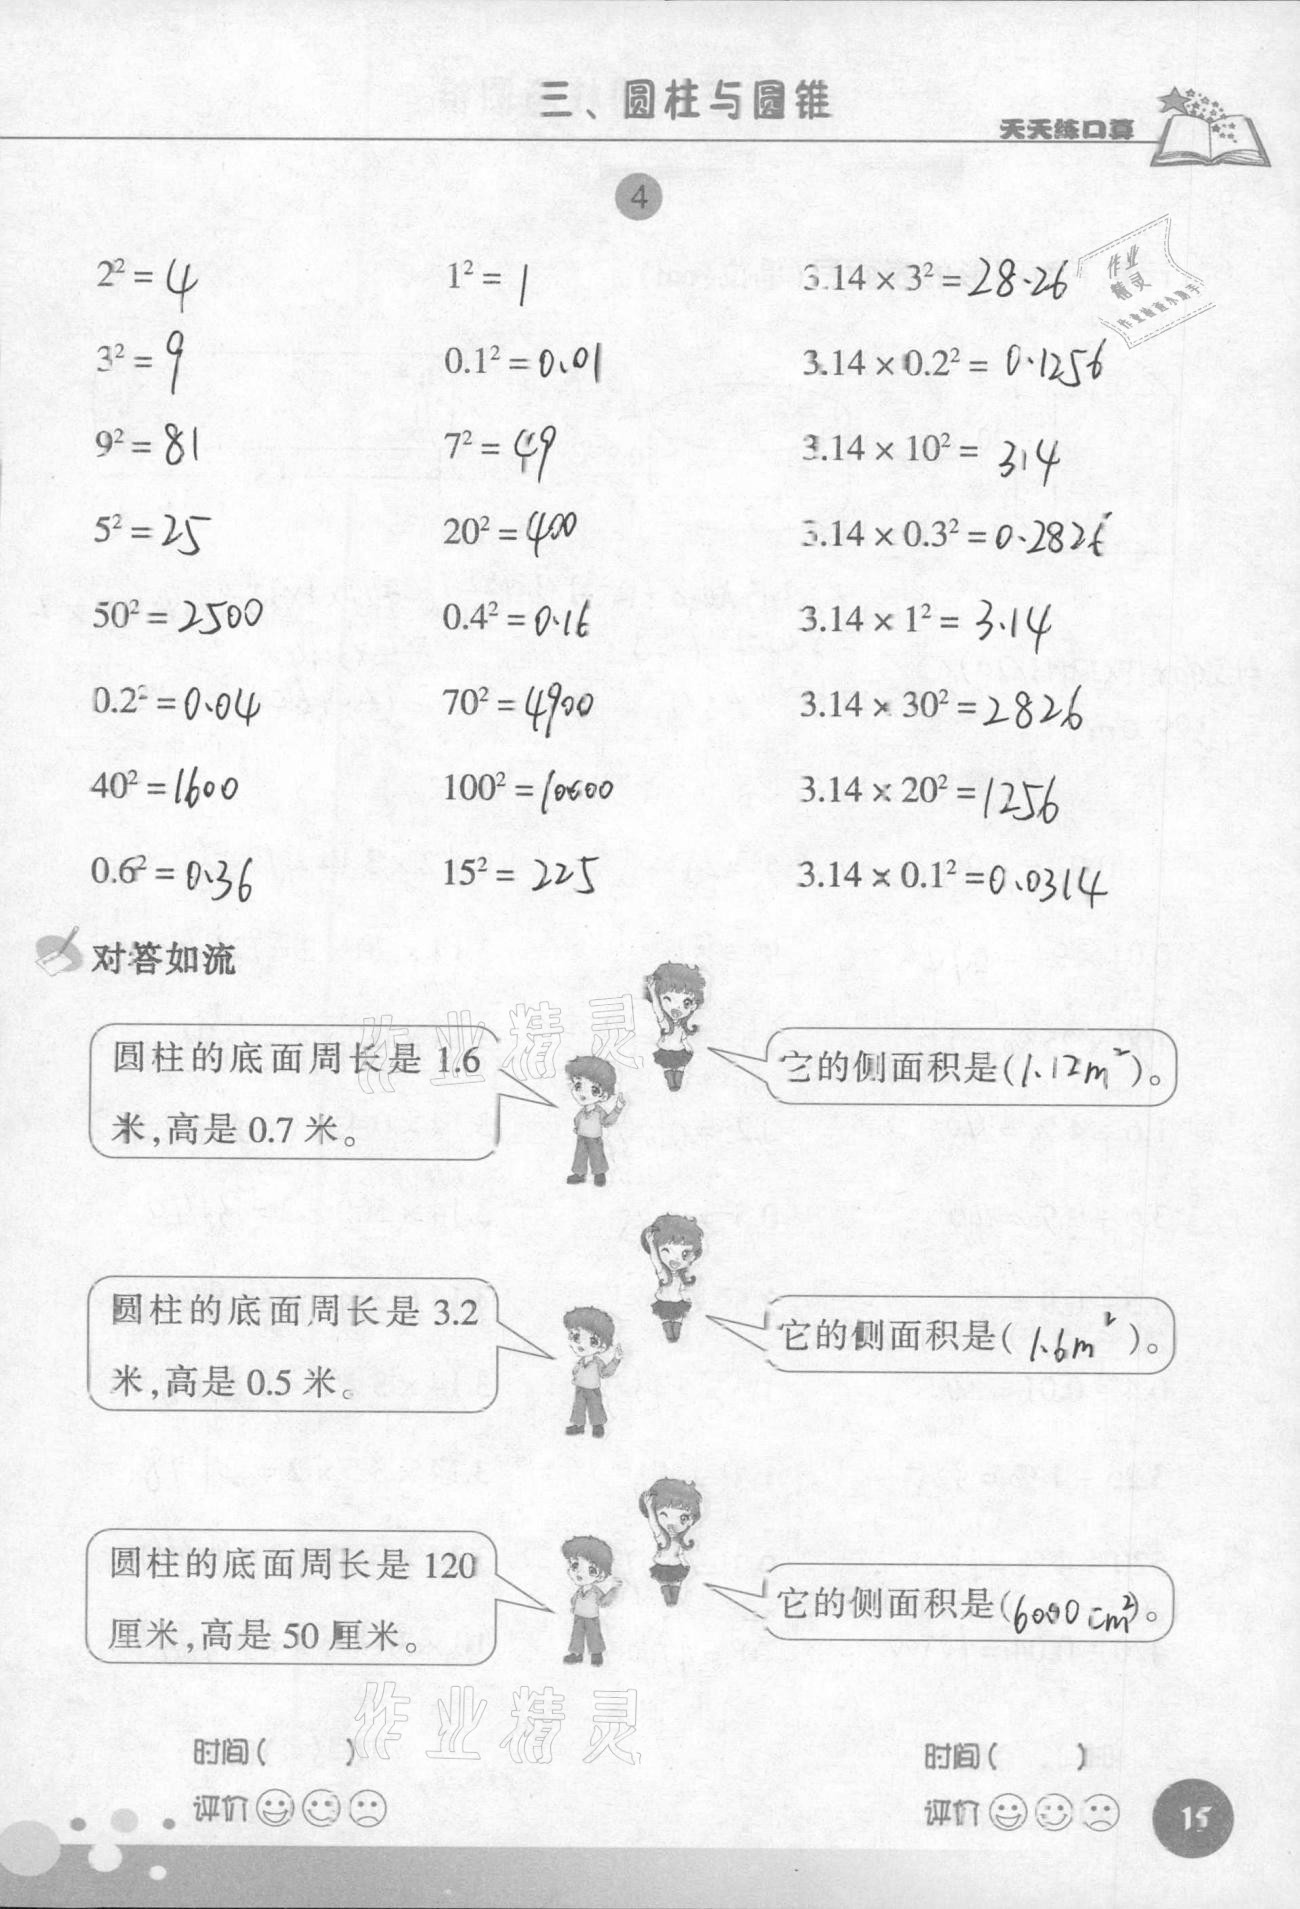 三、圆柱与圆锥
天天练口算
4
2² = 4 1² = 1 3.14 × 3² = 28.26
作业
精灵
作业检查小助手
3² = 9 0.1² = 0.01 3.14 × 0.2² = 0.1256
9² = 81 7² = 49 3.14 × 10² = 314
5² = 25 20² = 400 3.14 × 0.3² = 0.2826
50² = 2500 0.4² = 0.16 3.14 × 1² = 3.14
0.2² = 0.04 70² = 4900 3.14 × 30² = 2826
40² = 1600 100² = 10000 3.14 × 20² = 1256
0.6² = 0.36 15² = 225 3.14 × 0.1² = 0.0314
对答如流
作业精灵
圆柱的底面周长是 1.6
米,高是 0.7 米。
它的侧面积是(1.12m²)。
圆柱的底面周长是 3.2
米,高是 0.5 米。
它的侧面积是(1.6m²)。
圆柱的底面周长是 120
厘米,高是 50 厘米。
它的侧面积是(6000cm²)。
作业精灵
时间( ) 时间( )
评价 评价
15